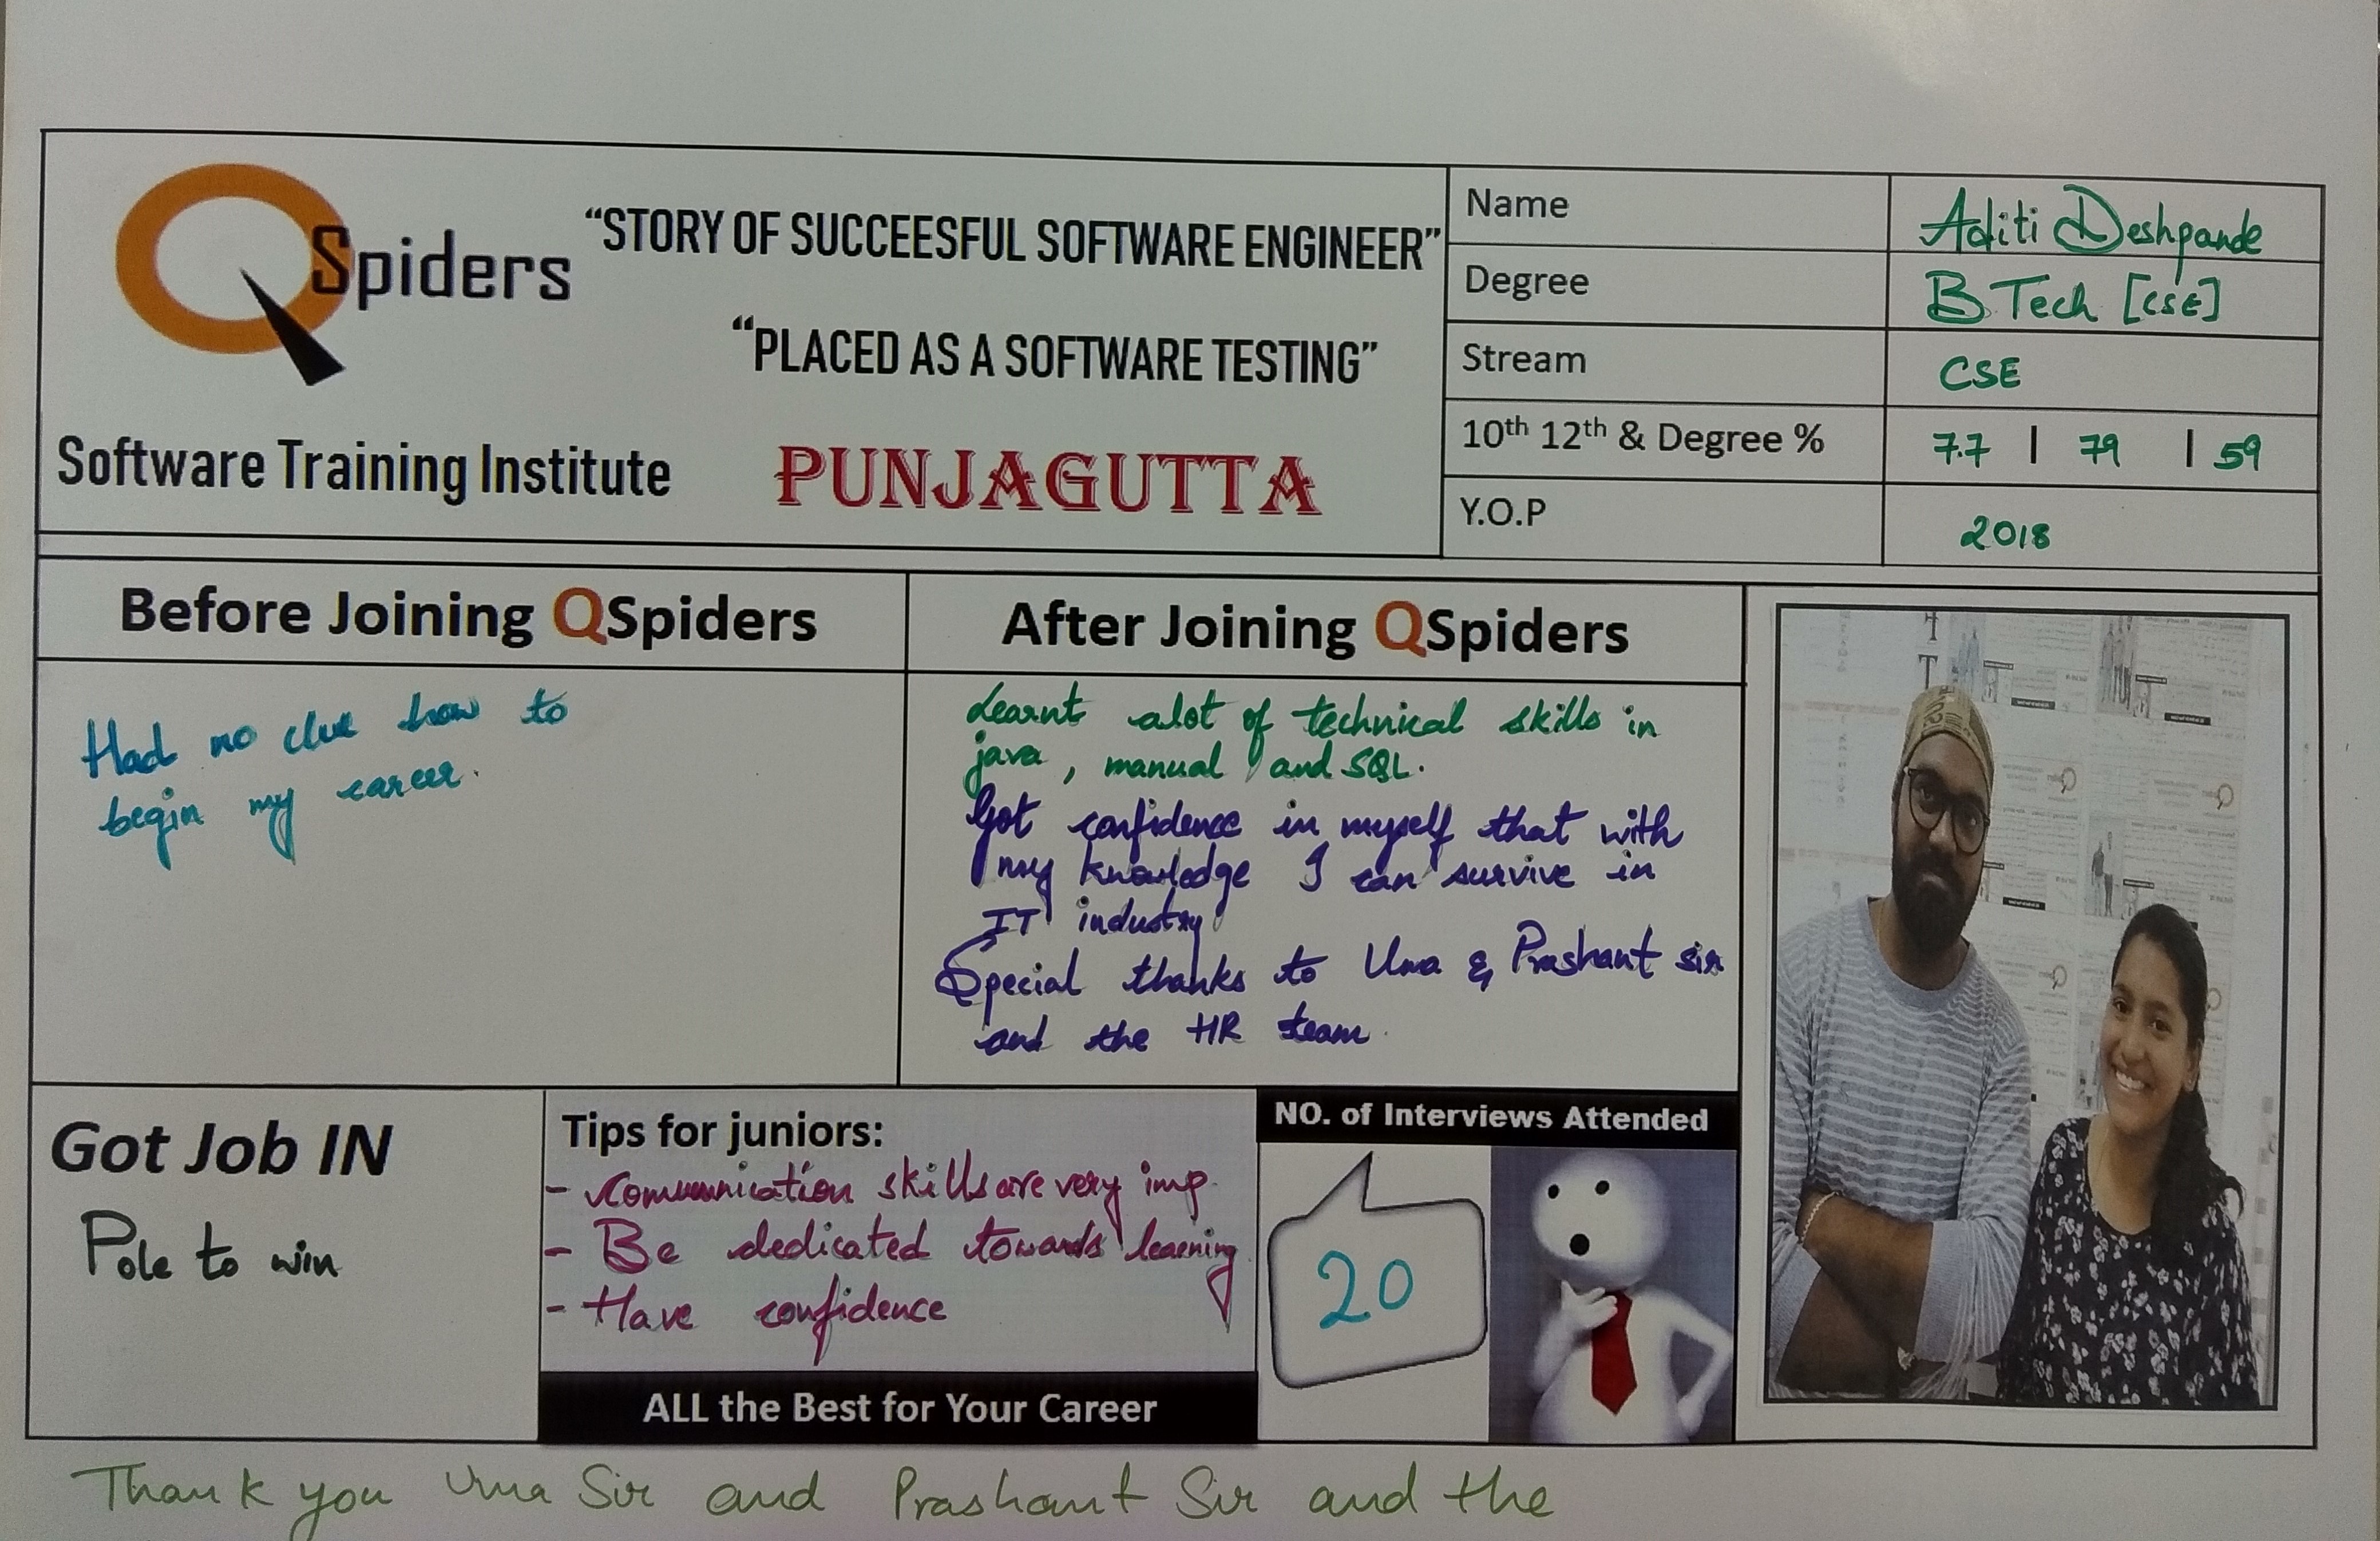 QSpiders
"STORY OF SUCCEESFUL SOFTWARE ENGINEER"
"PLACED AS A SOFTWARE TESTING"
Software Training Institute
PUNJAGUTTA
Name Aditi Deshpande
Degree B Tech [CSE]
Stream CSE
10th 12th & Degree % 7.7 | 79 | 59
Y.O.P 2018
Before Joining QSpiders
Had no clue how to
begin my career.
After Joining QSpiders
Learnt alot of technical skills in
java, manual and SQL.
Got confidence in myself that with
my knowledge I can survive in
IT industry
Special thanks to Uma & Prashant sir
and the HR team.
Got Job IN
Pole to win
Tips for juniors:
- Communication skills are very imp.
- Be dedicated towards learning
- Have confidence
ALL the Best for Your Career
NO. of Interviews Attended
20
Thank you Uma Sir and Prashant Sir and the